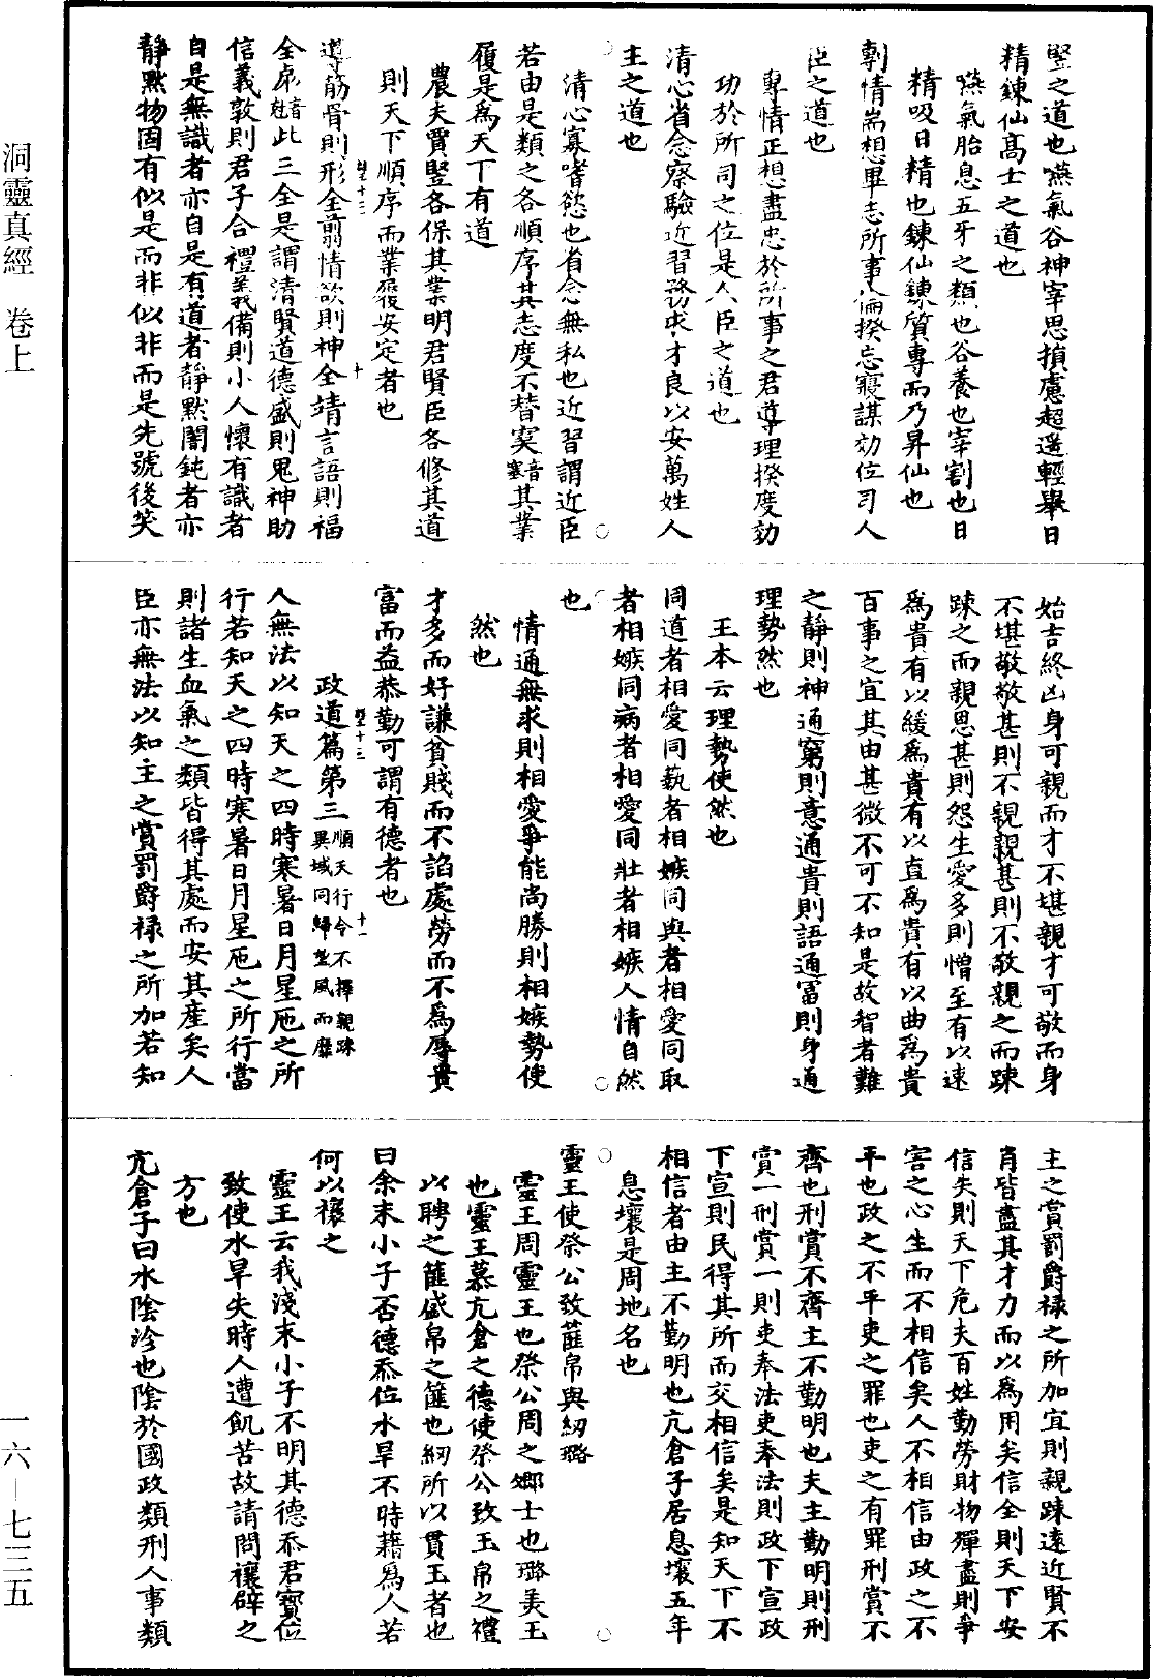 豎之道也嚥氣谷神宰思損慮超遥輕舉日
精鍊仙高士之道也
嚥氣胎息五牙之類也谷養也宰割也日
精吸日精也鍊仙鍊質專而乃昇仙也
剸情耑想畢志所事倫揆忘寢謀効位司人
臣之道也
專情正想盡忠於所事之君尊理揆度効
功於所司之位是人臣之道也
清心省念察驗近習務求才良以安萬姓人
主之道也
清心寡嗜慾也省念無私也近習謂近臣
若由是類之各順序其志度不替寞音其業
履是爲天下有道
農夫賈豎各保其業明君賢臣各修其道
則天下順序而業履安定者也
導筋骨則形全翦情欲則神全靖言語則福
全音此三全是謂清賢道德盛則鬼神助
信義敦則君子合禮義備則小人懷有識者
自是無識者亦自是有道者靜黙闇鈍者亦
靜黙物固有似是而非似非而是先號後笑
始吉終凶身可親而才不堪親才可敬而身
不堪敬敬甚則不親親甚則不敬親之而踈
踈之而親思甚則怨生愛多則憎至有以速
爲貴有以緩爲貴有以直爲貴有以曲爲貴
百事之宜其由甚微不可不知是故智者難
之靜則神通窮則意通貴則語通富則身通
理勢然也
王本云理勢使然也
同道者相愛同藝者相嫉同與者相愛同取
者相嫉同病者相愛同壯者相嫉人情自然
也
情通無求則相愛爭能尚勝則相嫉勢使
然也
才多而好謙貧賤而不諂處勞而不爲辱貴
富而益恭勤可謂有德者也
政道篇第三順天行令不擇親踈異域同歸望風而靡
人無法以知天之四時寒暑日月星辰之所
行若知天之四時寒暑日月星辰之所行當
則諸生血氣之類皆得其處而安其產矣人
臣亦無法以知主之賞罰爵禄之所加若知
主之賞罰爵禄之所加宜則親踈遠近賢不
肖皆盡其才力而以爲用矣信全則天下安
信失則天下危夫百姓勤勞財物殫盡則爭
害之心生而不相信矣人不相信由政之不
平也政之不平吏之罪也吏之有罪刑賞不
齊也刑賞不齊主不勤明也夫主勤明則刑
賞一刑賞一則吏奉法吏奉法則政下宣政
下宣則民得其所而交相信矣是知天下不
相信者由主不勤明也亢倉子居息壤五年
息壤是周地名也
靈王使祭公致篚帛與紉璐
靈王周靈王也祭公周之鄉士也璐美玉
也靈王慕亢倉之德使祭公致玉帛之禮
以聘之篚盛帛之篚也紉所以貫玉者也
曰余末小子否德忝位水旱不時藉爲人若
何以禳之
靈王云我淺末小子不明其德忝君寳位
致使水旱失時人遭飢苦故請問禳辟之
方也
亢倉子曰水陰沴也陰於國政類刑人事類
洞靈真經　卷上
一六—七三五